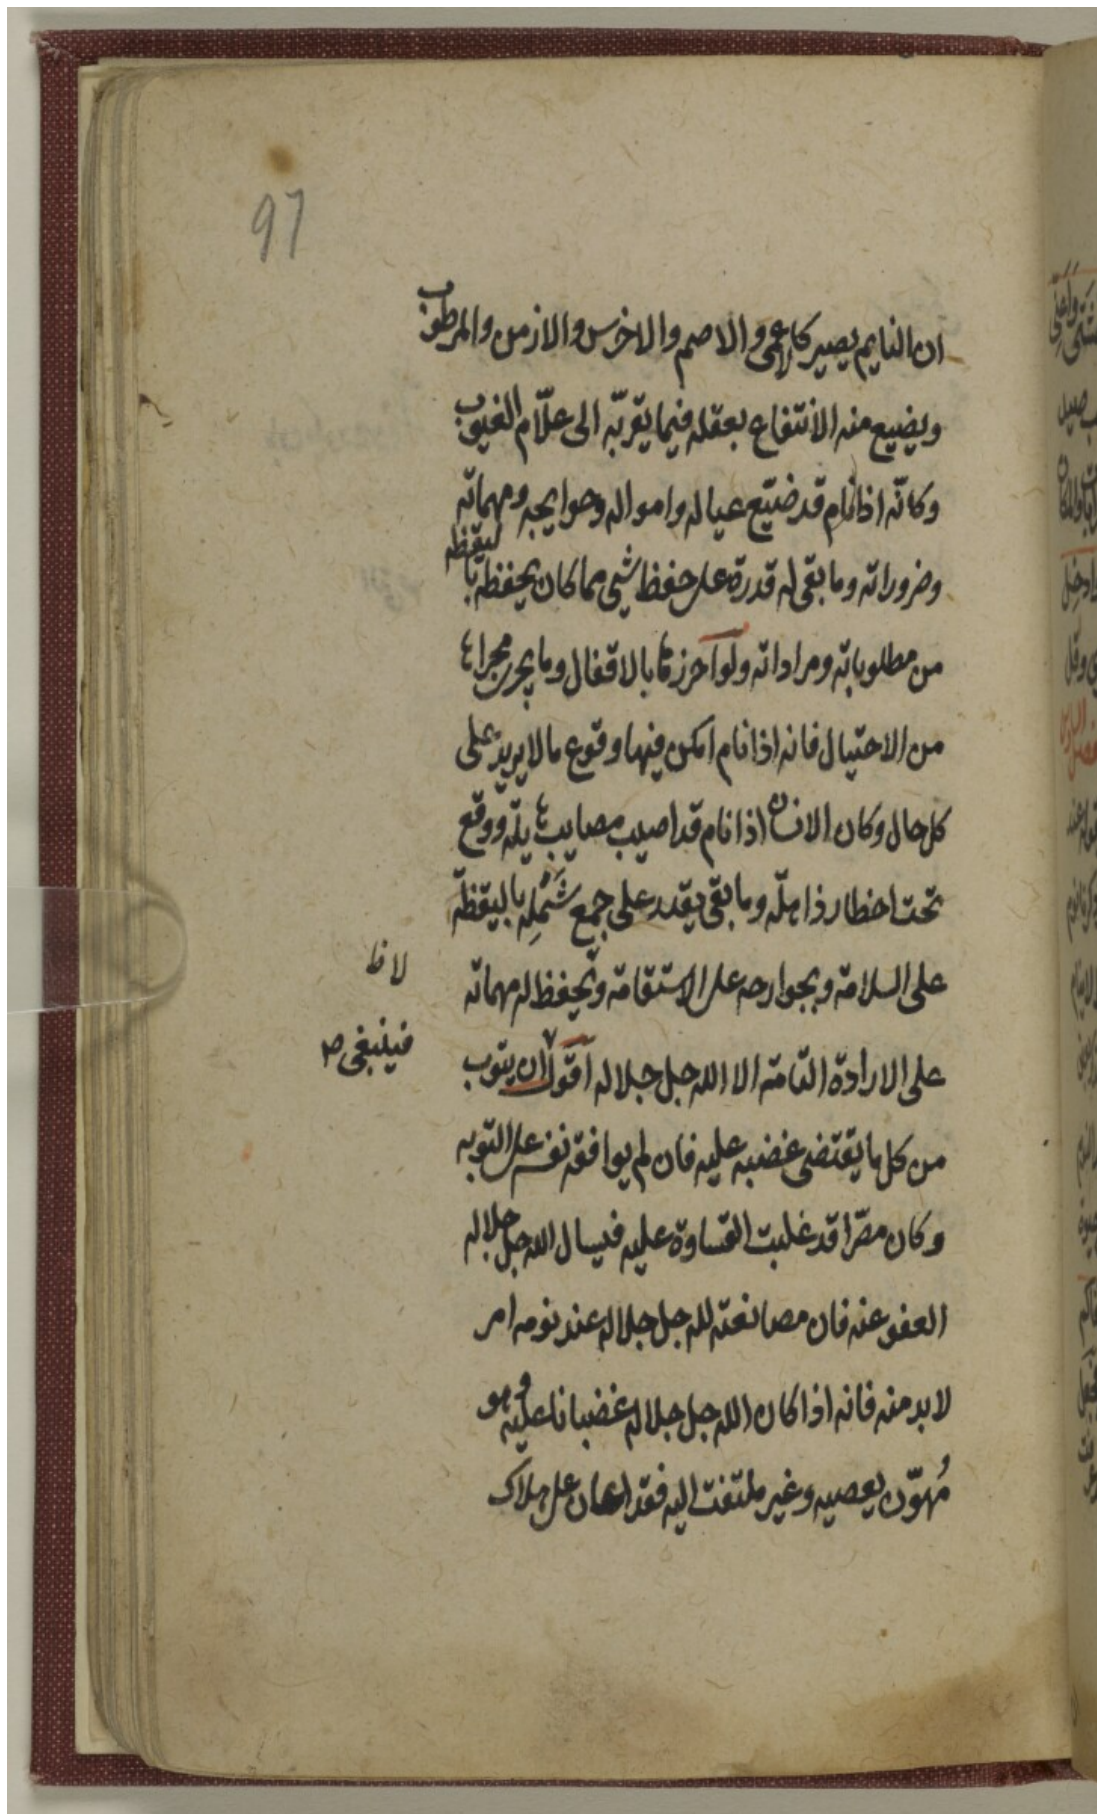 97
ان النايم يصير كالاعمى والاصم والاخرس والازمن والمرطوب
ويضيع منه الانتفاع بعقله فيما يقربه الى علّام الغيوب
وكانّه اذا نام قد ضيّع عياله وامواله وحوايجه ومهماته
وضروراته وما بقى له قدرة على حفظ شيى مما كان يحفظه باليقظه
من مطلوباته ومراداته ولو احرزها بالاقفال وما يجرى مجراها
من الاحتيال فانه اذا نام امكن فيها وقوع ما لا يريد على
كل حال وكان الانسان اذا نام قد اصيب مصايب هايلة ووقع
تحت اخطار ذاهلة وما بقى يقدر على جمع شَمْلِه باليقظة
على السلامة وبجوارحه على الاستقامة ويحفظ له مهماته
لا ظ
على الارادة التامة الا الله جل جلاله اقول ان يتوب
فينبغى ص
من كل ما يقتضى غضبه عليه فان لم يوافقه نفسه على التوبه
وكان مصرّا قد غلبت القساوة عليه فيسال الله جل جلاله
العفو عنه فان مصانعته لله جل جلاله عند نومه امر
لا بد منه فانه اذا كان الله جل جلاله غضبانا عليه وهو
مُهوّن يعصيه وغير ملتفت اليه فقد اعان على هلاك